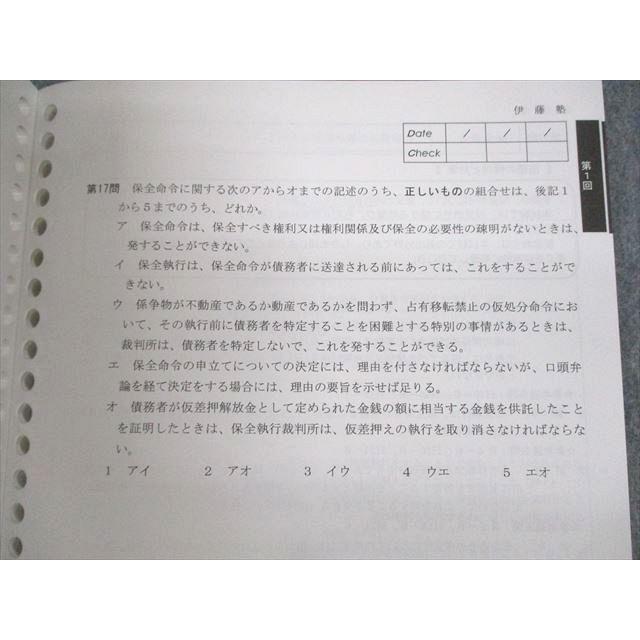 伊藤塾
Date / / /
Check
第1回
第17問 保全命令に関する次のアからオまでの記述のうち、正しいものの組合せは、後記1
から5までのうち、どれか。
ア 保全命令は、保全すべき権利又は権利関係及び保全の必要性の疎明がないときは、
発することができない。
イ 保全執行は、保全命令が債務者に送達される前にあっては、これをすることがで
きない。
ウ 係争物が不動産であるか動産であるかを問わず、占有移転禁止の仮処分命令にお
いて、その執行前に債務者を特定することを困難とする特別の事情があるときは、
裁判所は、債務者を特定しないで、これを発することができる。
エ 保全命令の申立てについての決定には、理由を付さなければならないが、口頭弁
論を経て決定をする場合には、理由の要旨を示せば足りる。
オ 債務者が仮差押解放金として定められた金銭の額に相当する金銭を供託したこと
を証明したときは、保全執行裁判所は、仮差押えの執行を取り消さなければならな
い。
1 アイ 2 アオ 3 イウ 4 ウエ 5 エオ